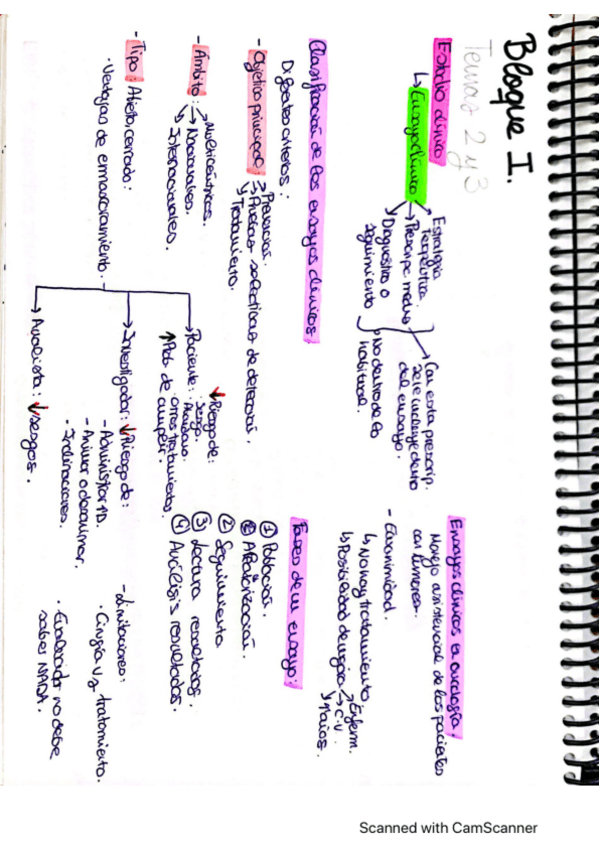 Bloque I.
Temas 2 y 3
Estudio clínico
↳ Ensayo clínico
Estrategia
terapéutica.
Prescripc medica
Diagnóstico o
seguimiento
Con esta prescrip.
se le incluye dentro
del ensayo.
No dentro de lo
habitual.
Clasificación de los ensayos clínicos.
Diferentes criterios:
- Objetivo principal
Prevención.
Pruebas selectivas de detección.
Tratamiento.
- Ámbito:
Multicéntricos.
Nacionales.
Internacionales.
- Tipo: Abierto cerrado:
· Ventajas de enmascaramiento.
→ Paciente:
↓ Riesgo de:
Sesgo.
Abandono.
otros tratamientos.
↑ Prob de cumplir.
→ Investigador: ↓ Riesgo de:
- Administrar TD.
- Animar o desanimar.
- Inclinaciones.
→ Analista: ↓ sesgos.
Ensayos clínicos en oncología.
Manejo asistencial de los pacientes
con tumores.
- Esponimidad.
↳ No hay tratamiento,
↳ Posibilidad de mejoria
Enferm.
C.V
Fases de un ensayo:
① Población.
② Aleatorización.
② Seguimiento
③ Lectura resultados.
④ Análisis resultados.
- Limitaciones:
· Cirugía vs tratamiento.
· Evaluador no debe
saber NADA.
Scanned with CamScanner